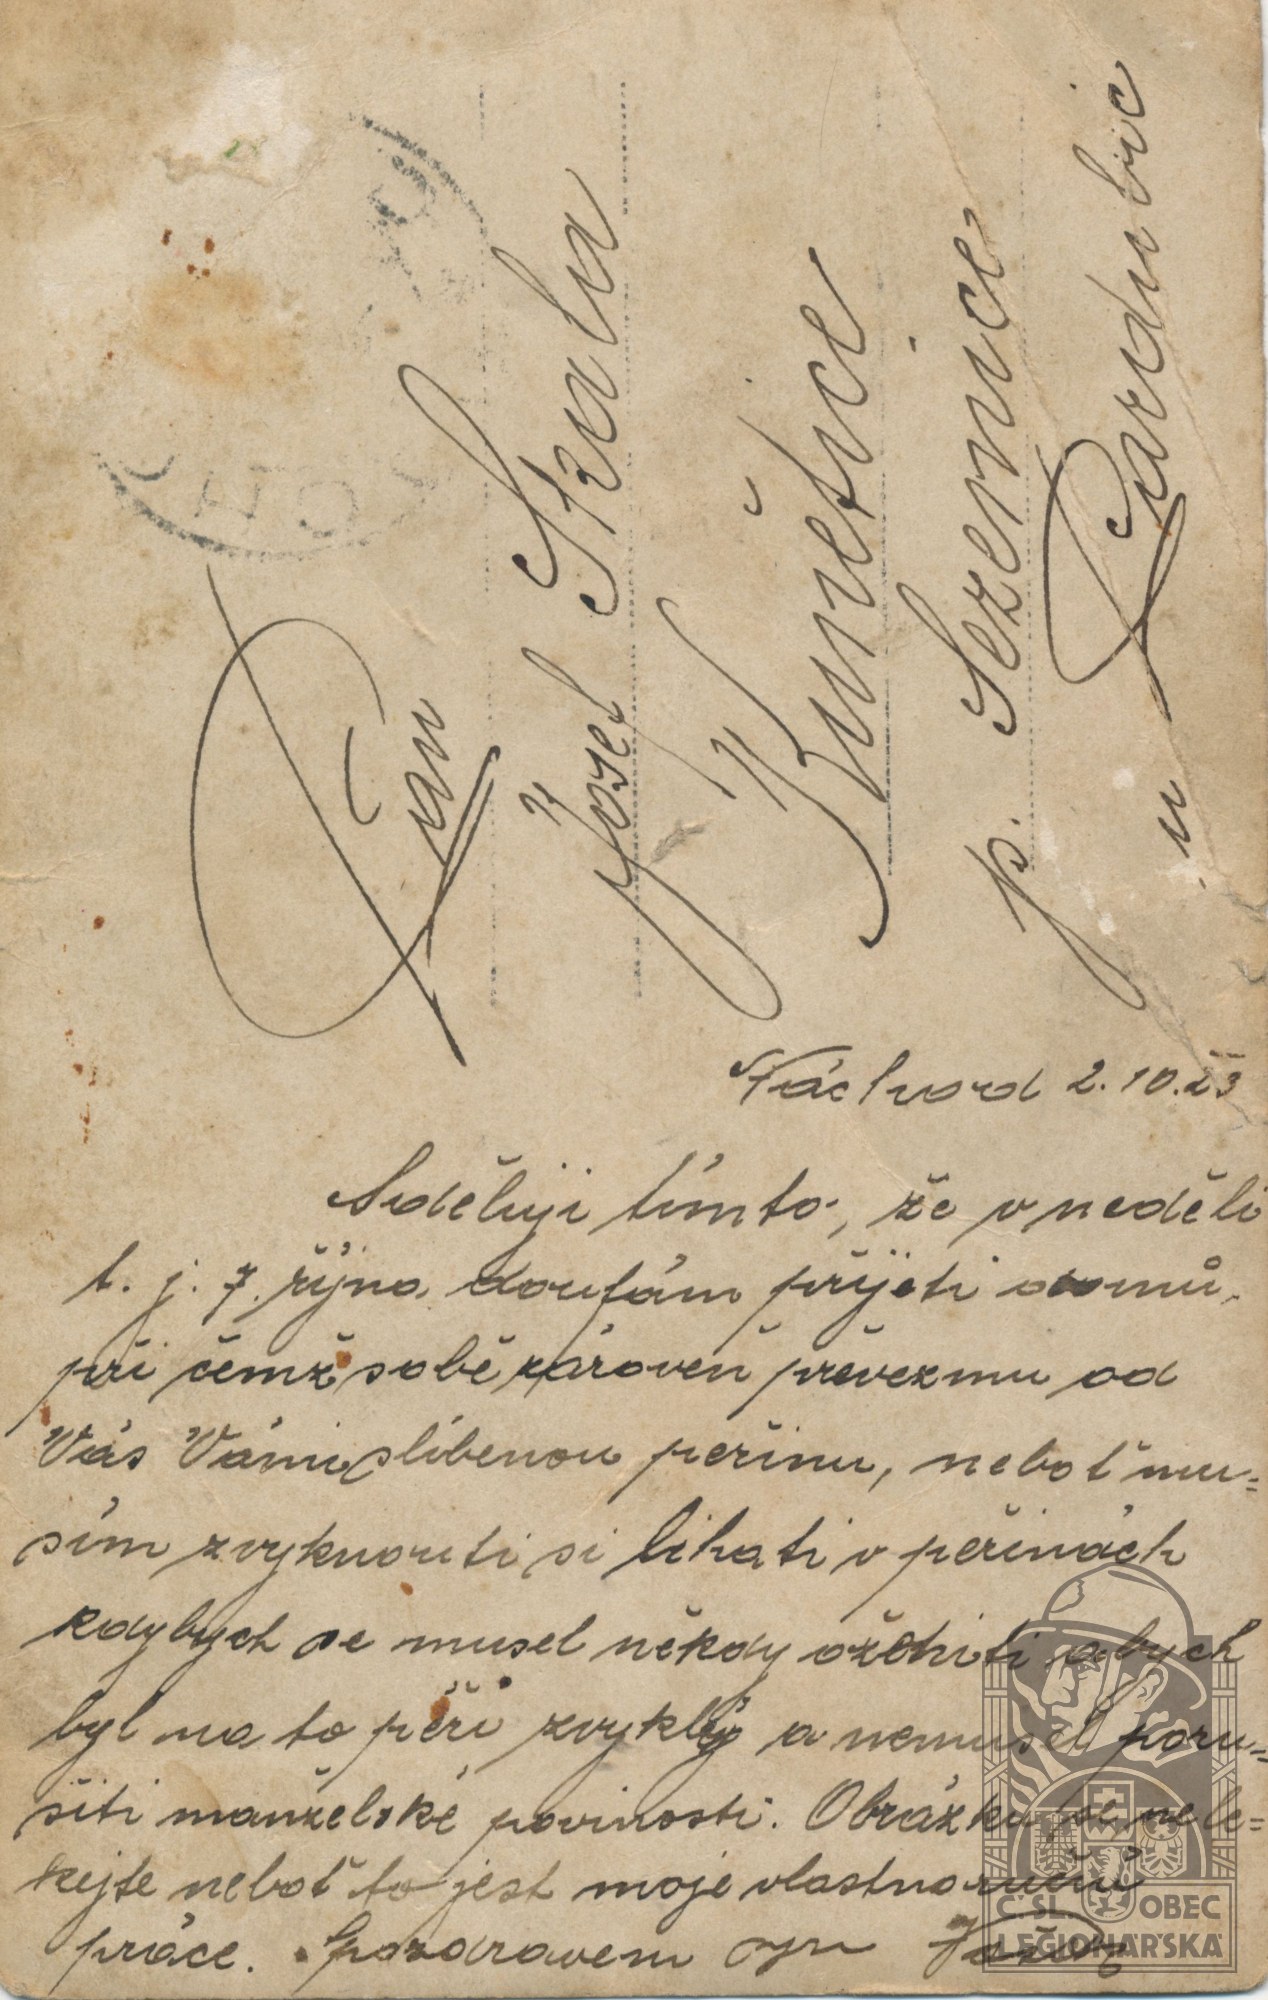 Pan
Josef Skala
Kunětice
p. Sezemice
u Pardubic
Náchod 2.10.23
Sděluji tímto, že v neděli
t. j. 7. října doufám přijeti domů,
při čemž sobě zároveň převezmu od
Vás Vámi slíbenou peřinu, neboť mu=
sím zvyknouti si líhati v peřinách
kdybych se musel někdy oženiti abych
byl na to péří zvyklý a nemusel poru=
šiti manželské povinosti. Obrázku se nele=
kejte neboť to jest moje vlastnoruční
práce. S pozdravem syn
Č. SL. OBEC
LEGIONÁŘSKÁ